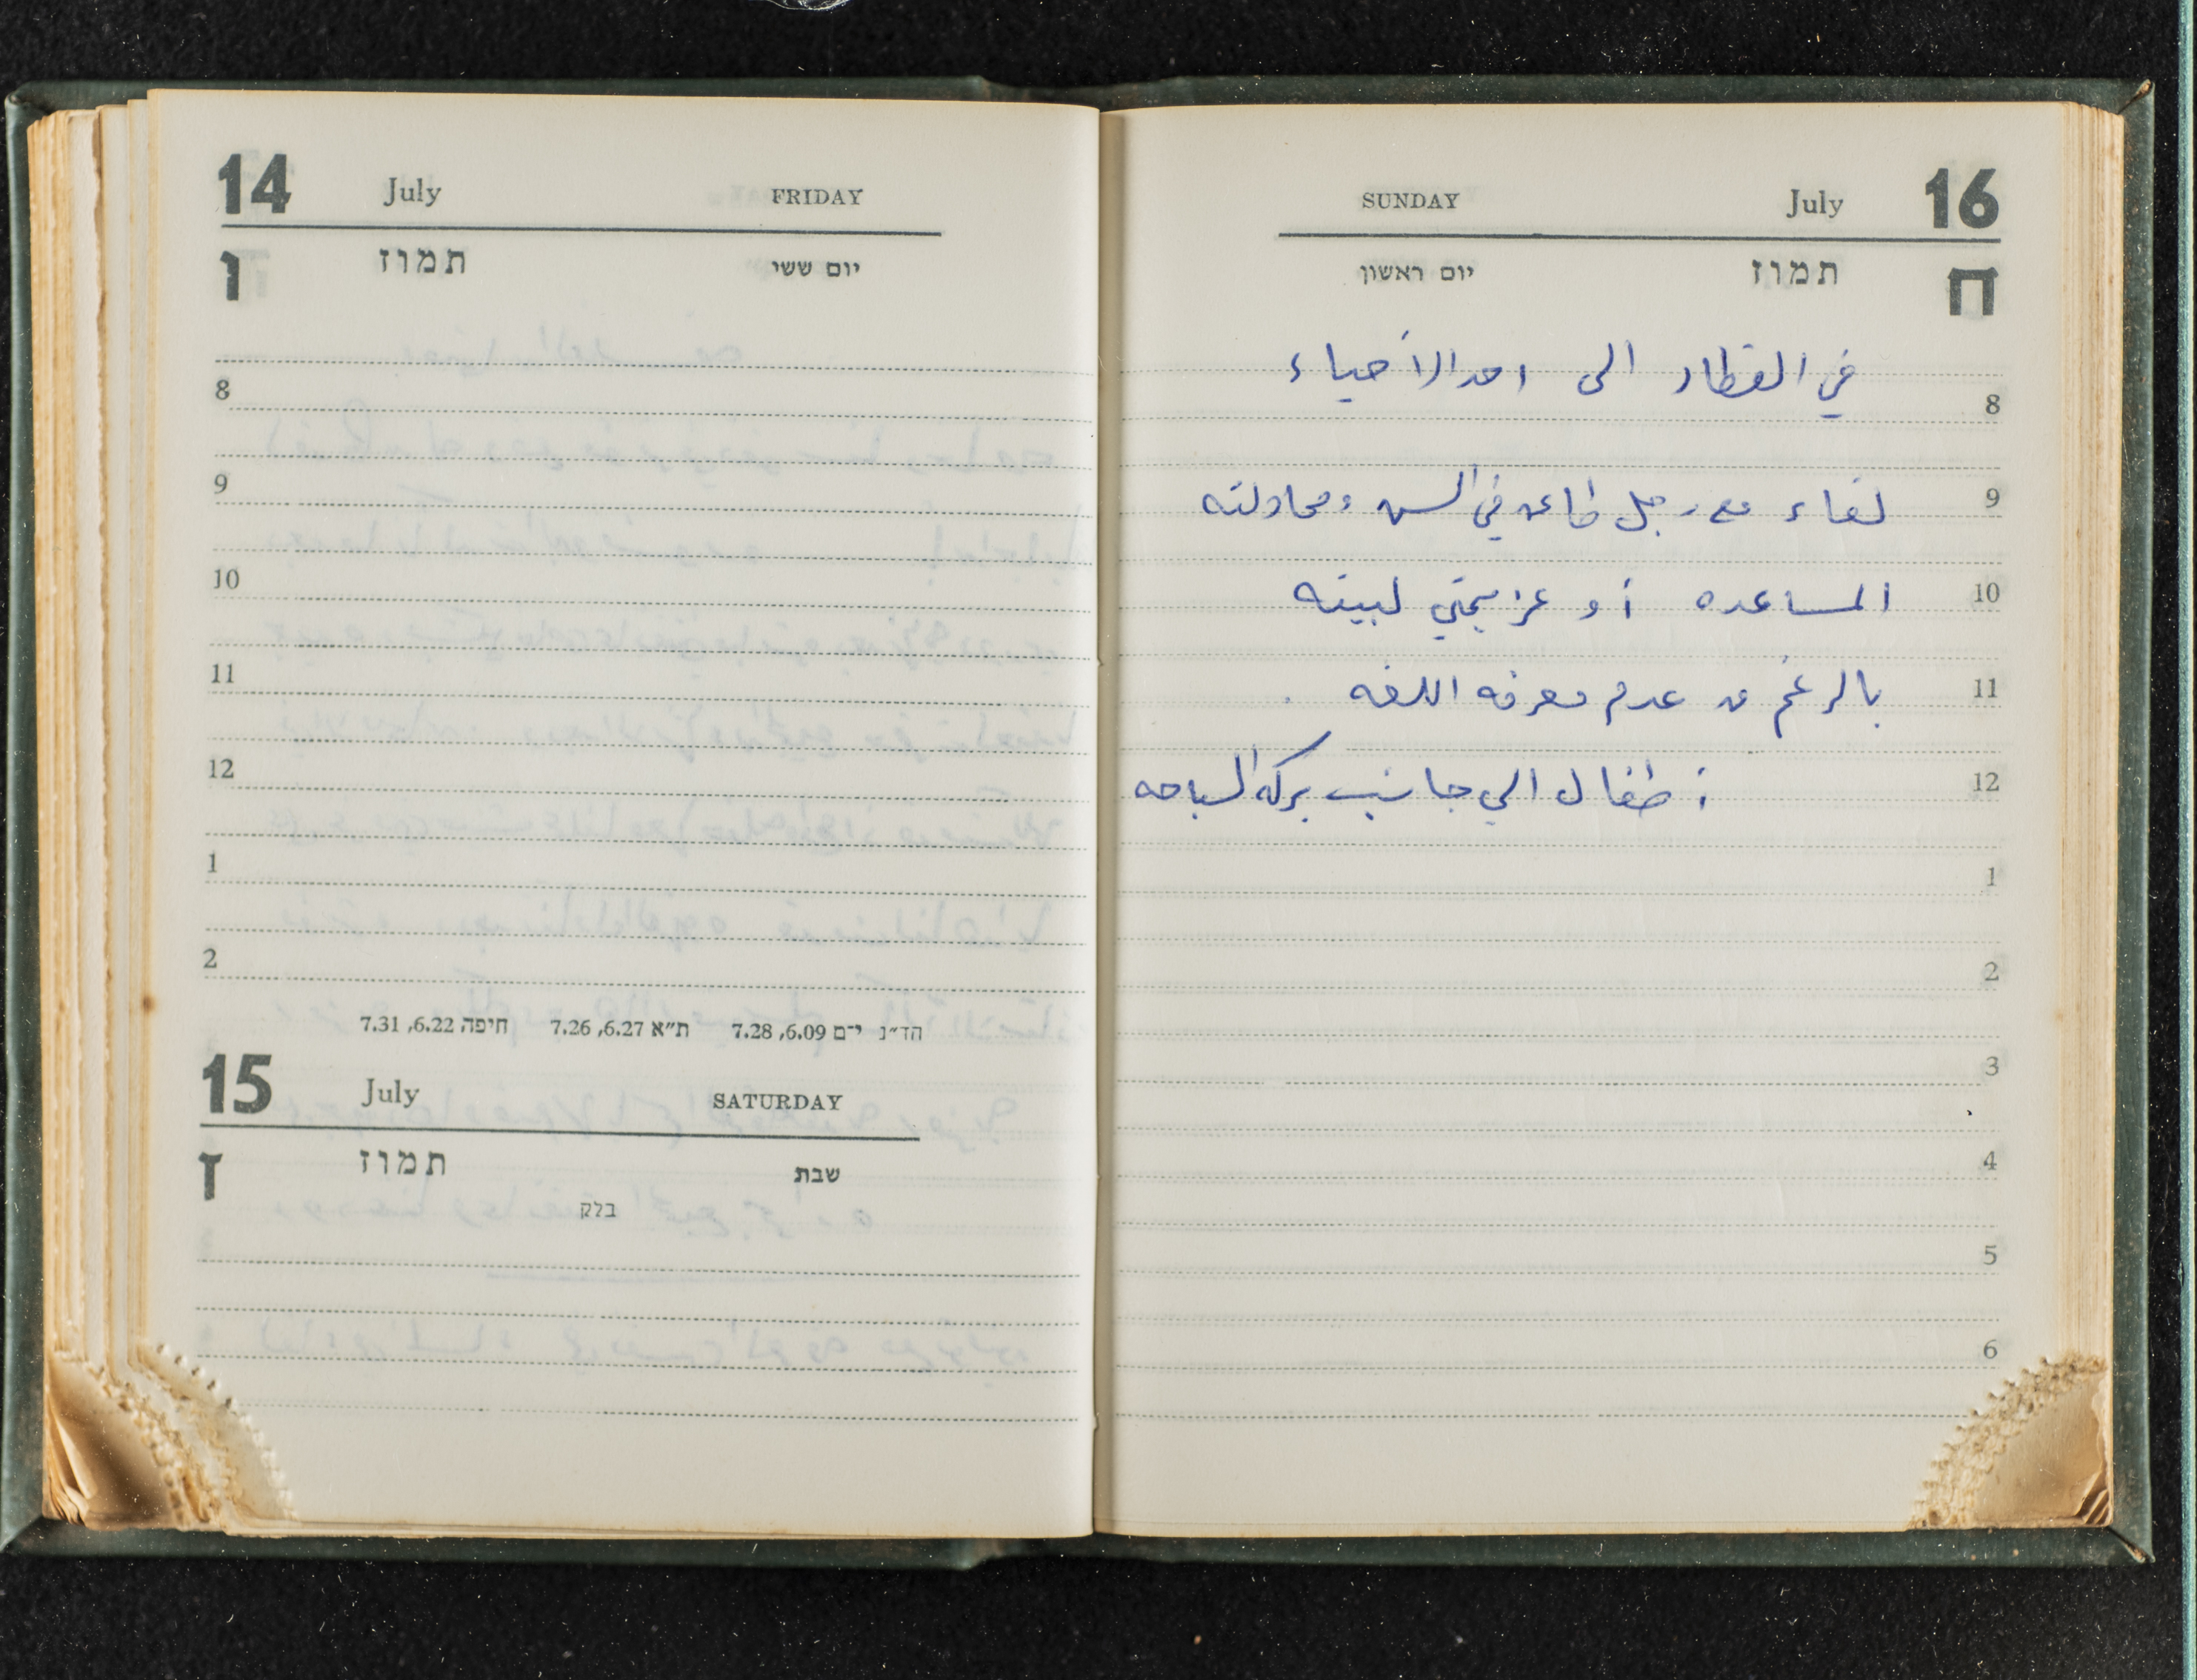 14 July FRIDAY
ו תמוז יום ששי
8
9
10
11
12
1
2
הד״נ י־ם 6.09, 7.28 ת״א 6.27, 7.26 חיפה 6.22, 7.31
15 July SATURDAY
ז תמוז שבת
בלק
SUNDAY July 16
ח תמוז יום ראשון
في القطار الى احد الاحياء
8
لقاء مع رجل طاعن في السن ومحاولته
9
المساعده أو عزيمتي لبيته
10
بالرغم من عدم معرفه اللغه .
11
أطفال الي جانب بركه السباحه
12
1
2
3
4
5
6